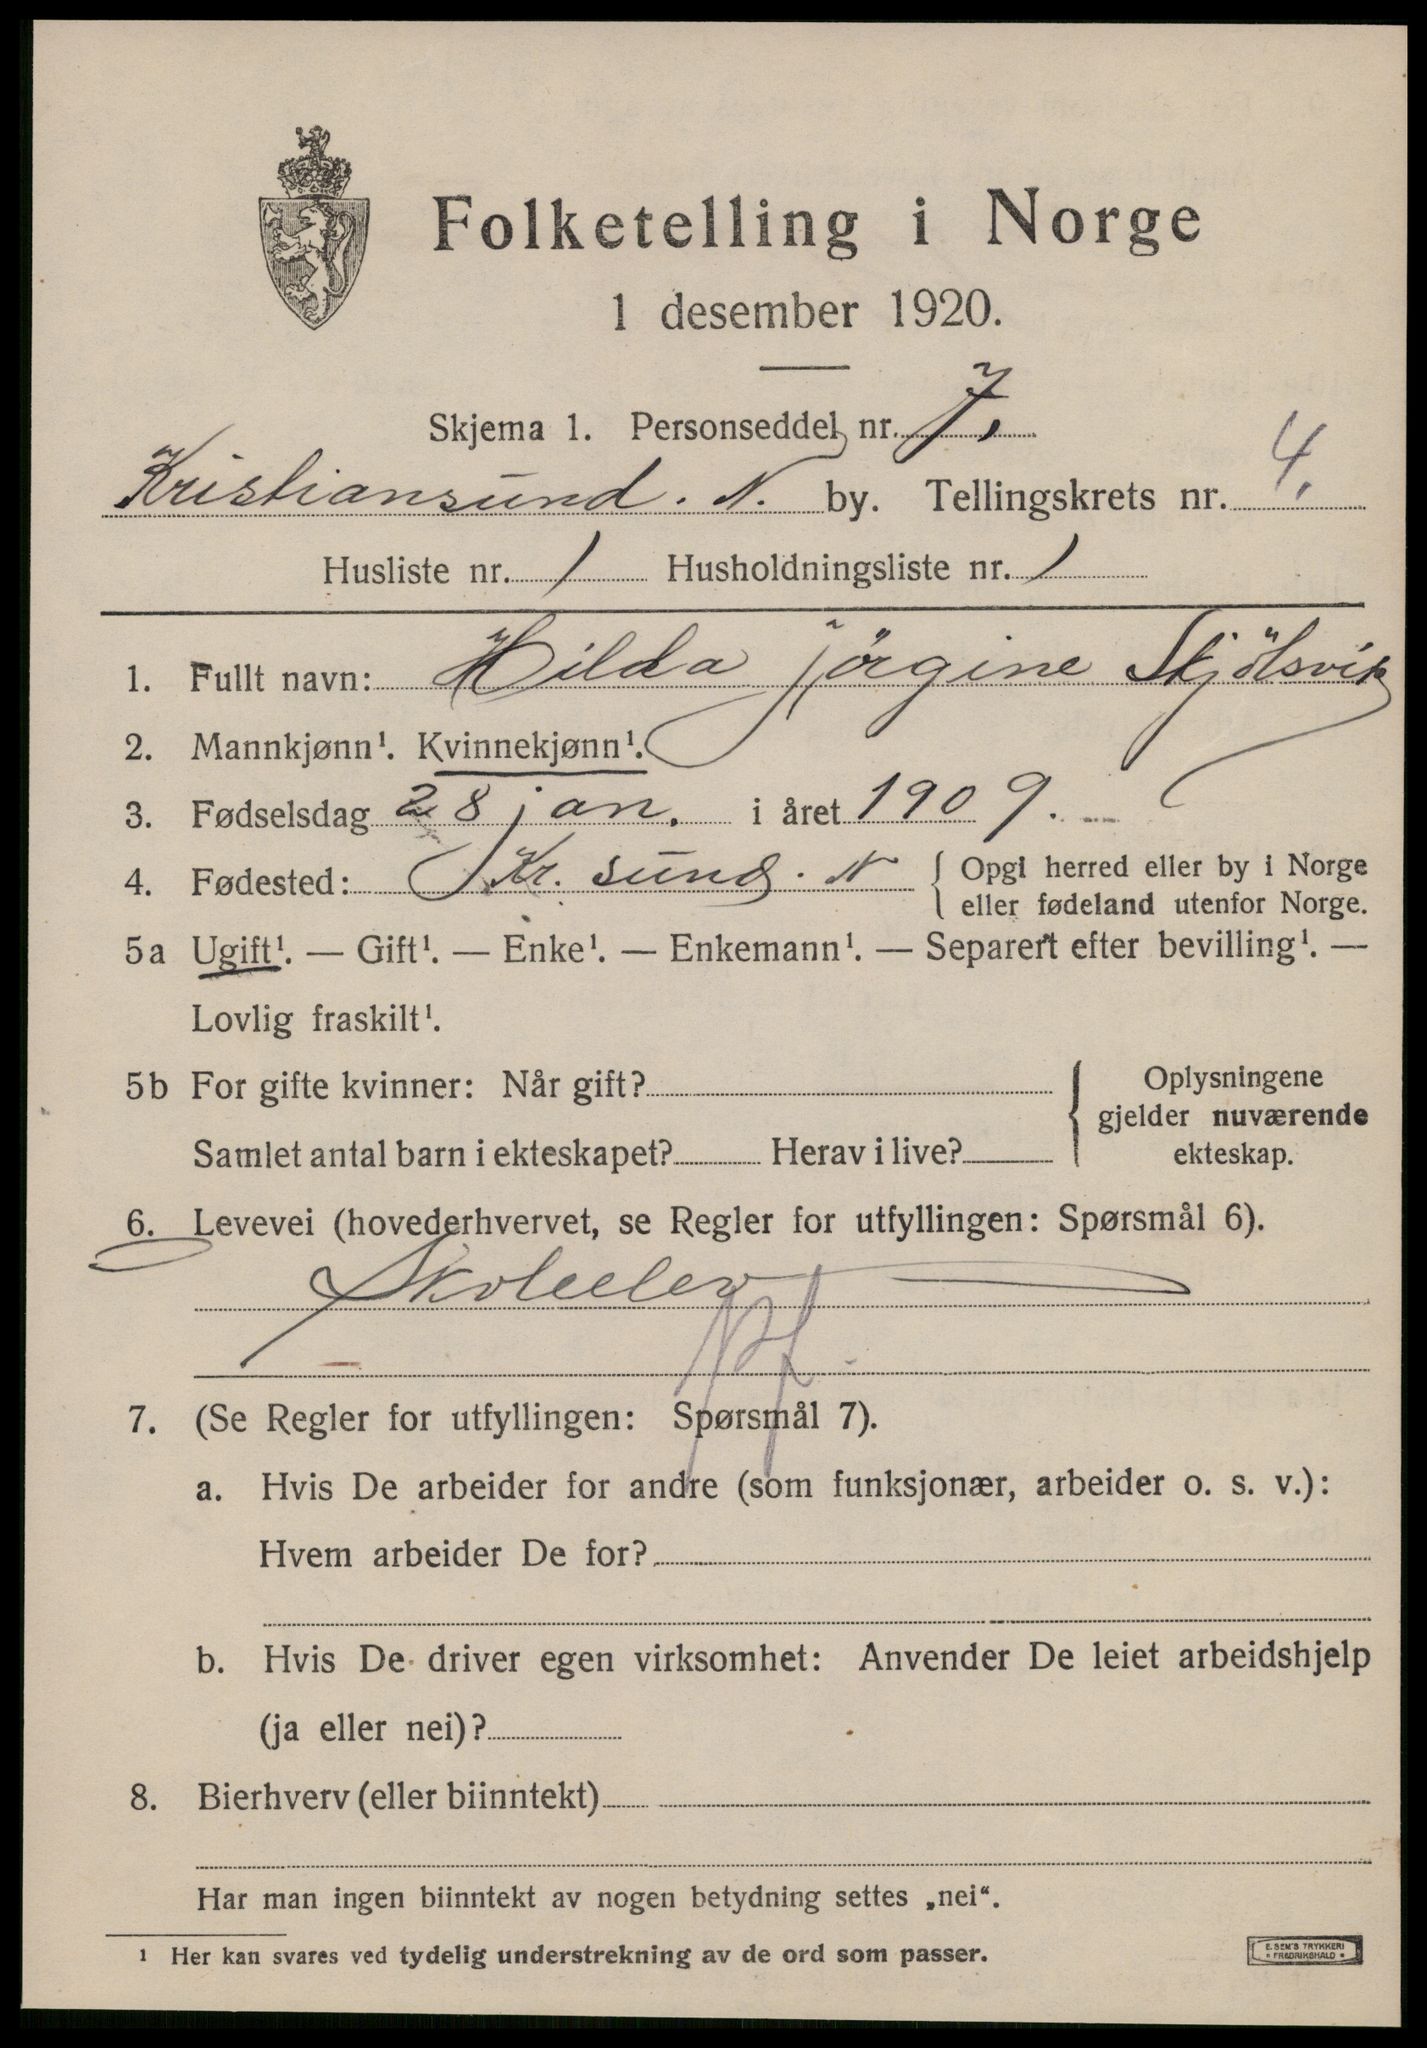 Folketelling i Norge
1 desember 1920.
Skjema 1. Personseddel nr. 7.
Kristiansund. N. by. Tellingskrets nr. 4.
Husliste nr. 1 Husholdningsliste nr. 1
1. Fullt navn: Hilda Jörgine Skjölsvik
2. Mannkjønn¹. Kvinnekjønn¹.
3. Fødselsdag 28 jan. i året 1909.
4. Fødested: Kr. sund. N { Opgi herred eller by i Norge
eller fødeland utenfor Norge.
5a Ugift¹. — Gift¹. — Enke¹. — Enkemann¹. — Separert efter bevilling¹. —
Lovlig fraskilt¹.
5b For gifte kvinner: Når gift? { Oplysningene
gjelder nuværende
Samlet antal barn i ekteskapet? Herav i live? ekteskap.
6. Levevei (hovederhvervet, se Regler for utfyllingen: Spørsmål 6).
Skoleelev
7. (Se Regler for utfyllingen: Spørsmål 7).
a. Hvis De arbeider for andre (som funksjonær, arbeider o. s. v.):
Hvem arbeider De for?
b. Hvis De driver egen virksomhet: Anvender De leiet arbeidshjelp
(ja eller nei)?
8. Bierhverv (eller biinntekt)
Har man ingen biinntekt av nogen betydning settes „nei“.
¹ Her kan svares ved tydelig understrekning av de ord som passer.
E. SEM'S TRYKKERI
* FREDRIKSHALD *